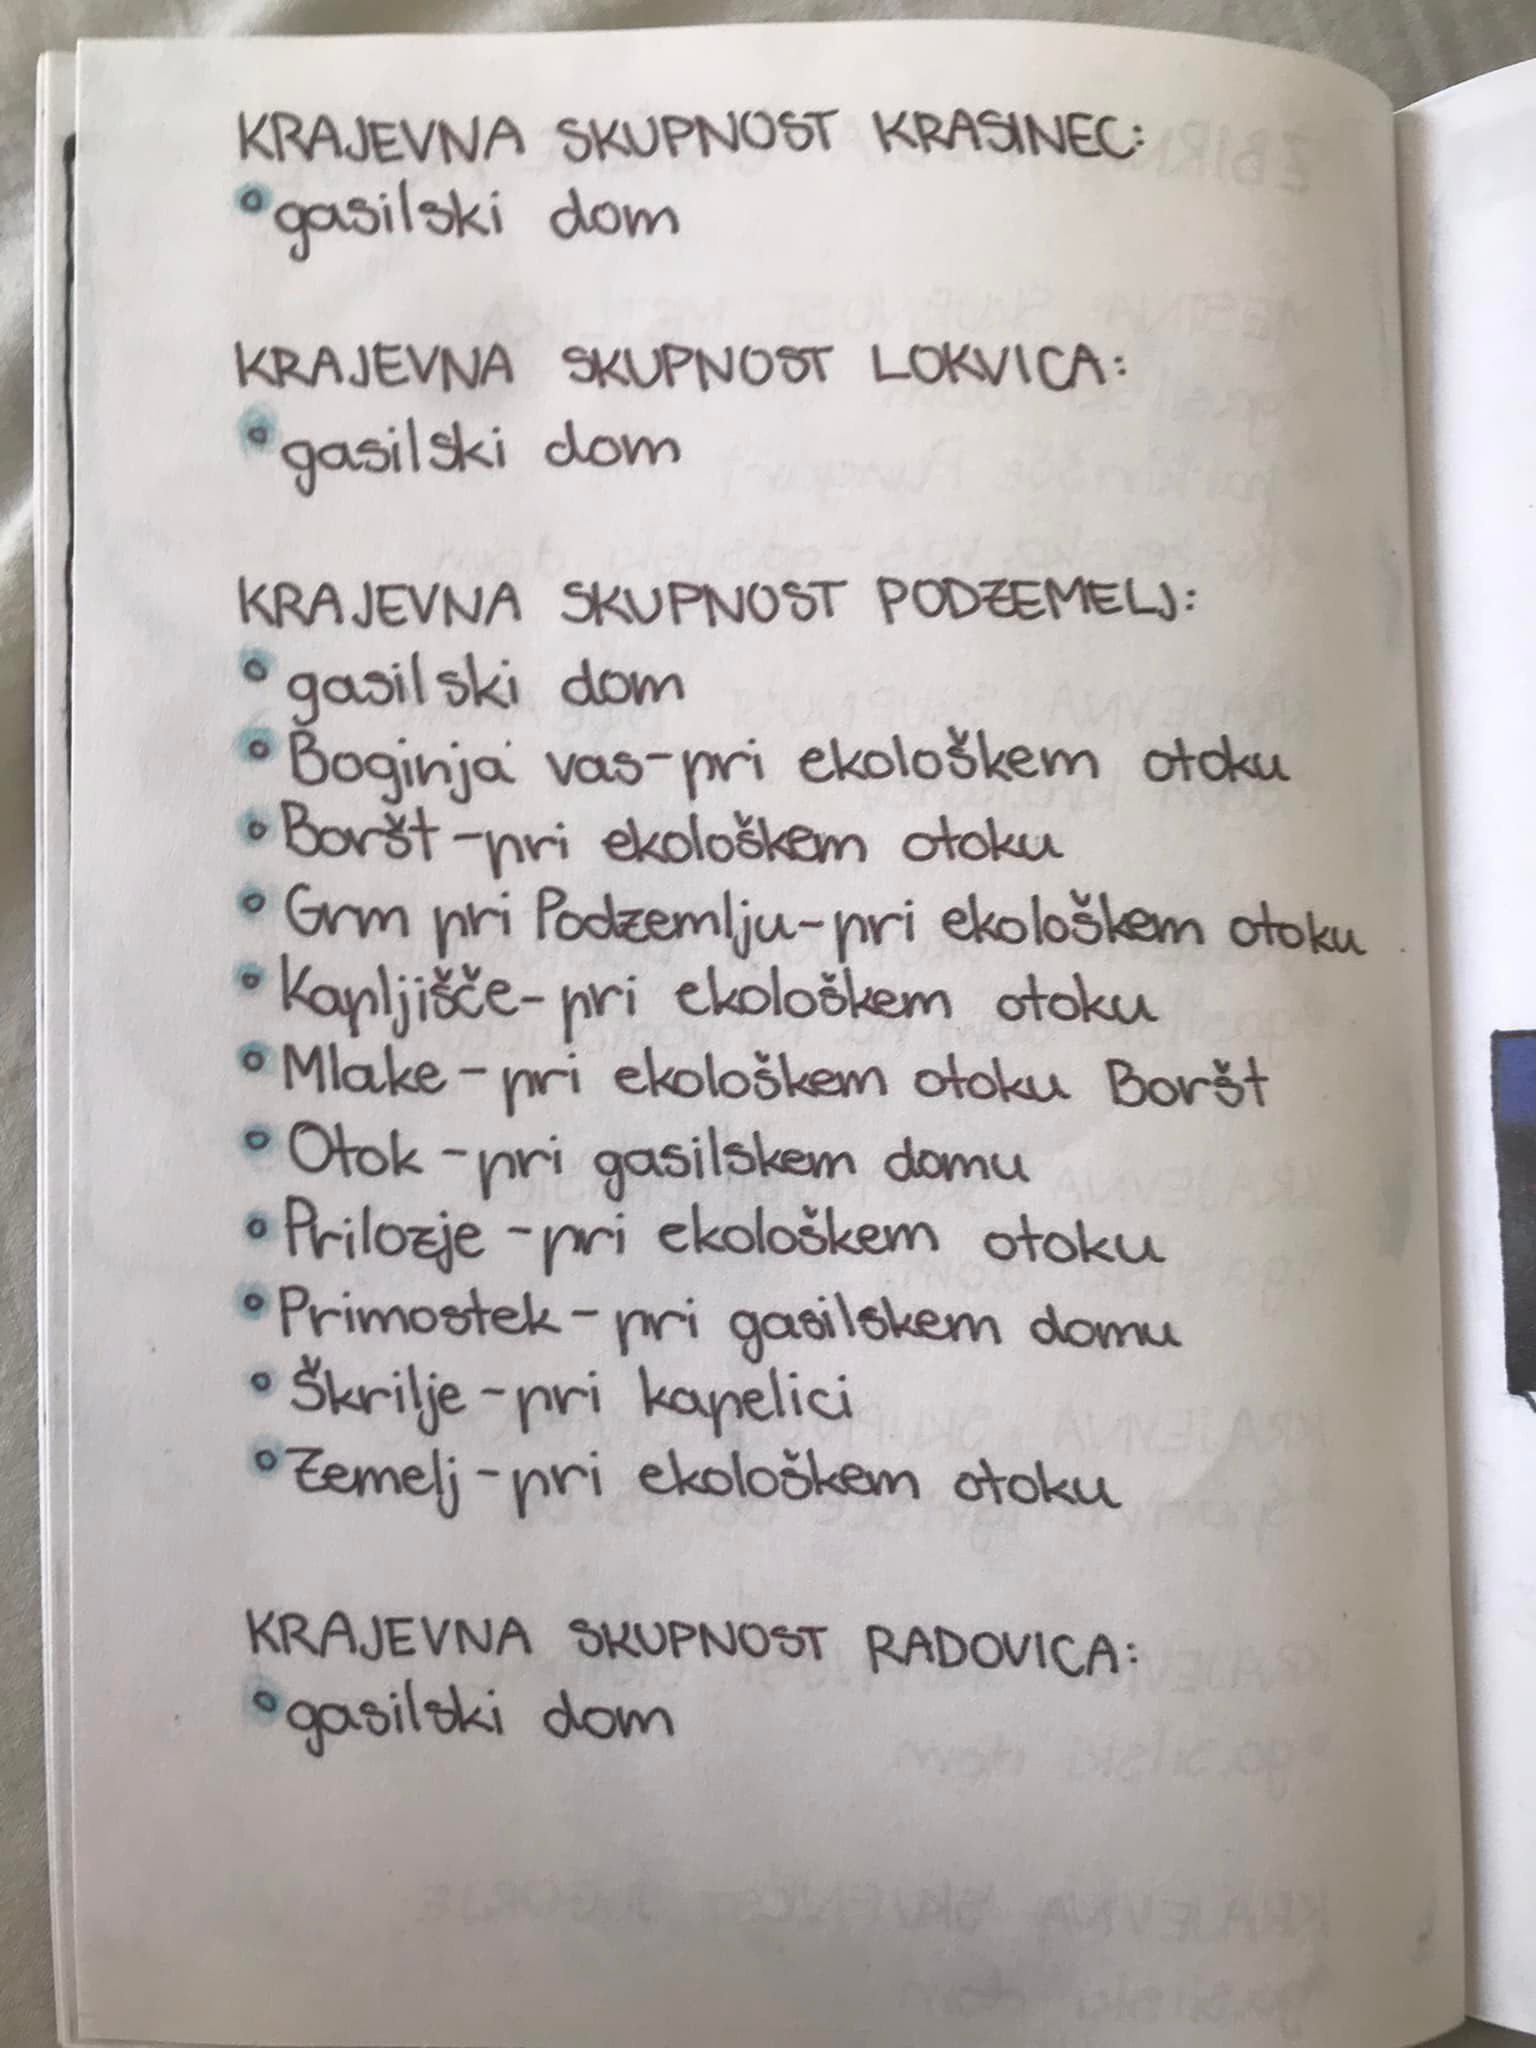 KRAJEVNA SKUPNOST KRASINEC:
° gasilski dom
KRAJEVNA SKUPNOST LOKVICA:
° gasilski dom
KRAJEVNA SKUPNOST PODZEMELJ:
° gasilski dom
° Boginja vas-pri ekološkem otoku
° Boršt-pri ekološkem otoku
° Grm pri Podzemlju-pri ekološkem otoku
° Kapljišče-pri ekološkem otoku
° Mlake-pri ekološkem otoku Boršt
° Otok-pri gasilskem domu
° Prilozje-pri ekološkem otoku
° Primostek-pri gasilskem domu
° Škrilje-pri kapelici
° Zemelj-pri ekološkem otoku
KRAJEVNA SKUPNOST RADOVICA:
° gasilski dom